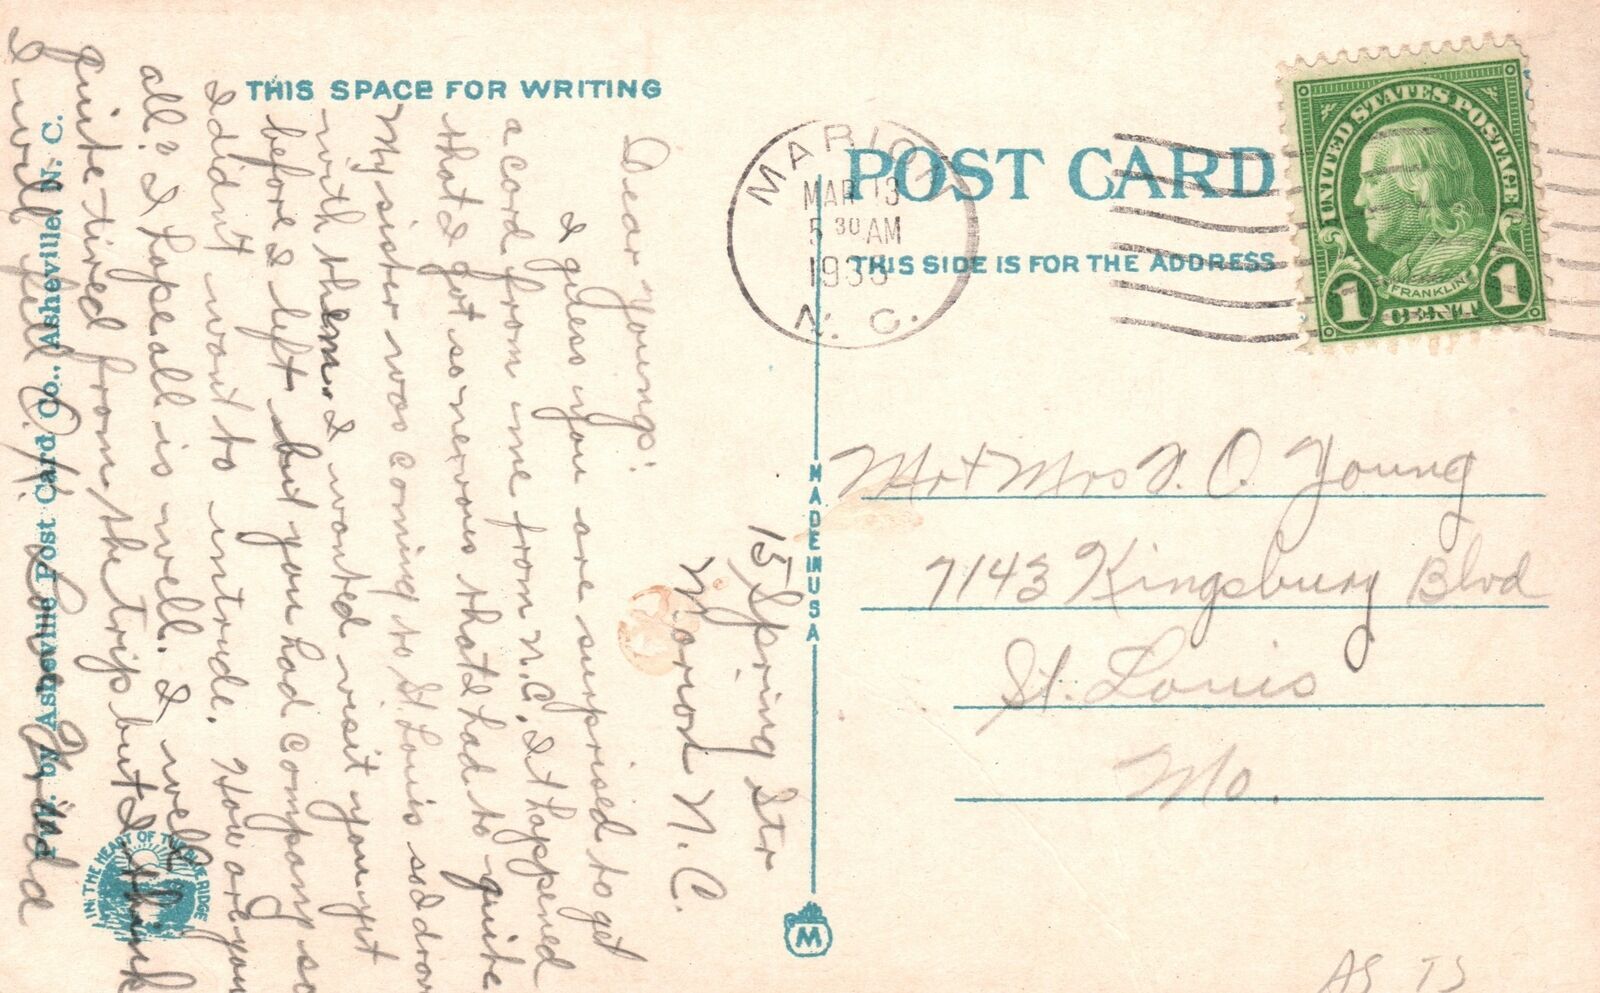 THIS SPACE FOR WRITING
15 Spring Str
Marion N. C.
Dear Youngs:
I guess you are surprised to get
a card from me from N.C. It happened
that I got so nervous that I had to quite
My sister was coming to St Louis so I drove
with them. I wanted visit you yet
before I left but you had company so
I didn't want to intrude. How are you
all? I hope all is well. I well
quite tired from the trip but I think
I will feel O.K. Love Frieda
Pub. by Asheville Post Card Co., Asheville, N. C.
IN THE HEART OF THE BLUE RIDGE
MADE IN USA
M
POST CARD
THIS SIDE IS FOR THE ADDRESS
MARION
MAR 13
5 30 AM
1933
N. C.
UNITED STATES POSTAGE
FRANKLIN
1 CENT 1
Mr + Mrs V. O. Young
7143 Kingsbury Blvd
St. Louis
Mo.
AS TS